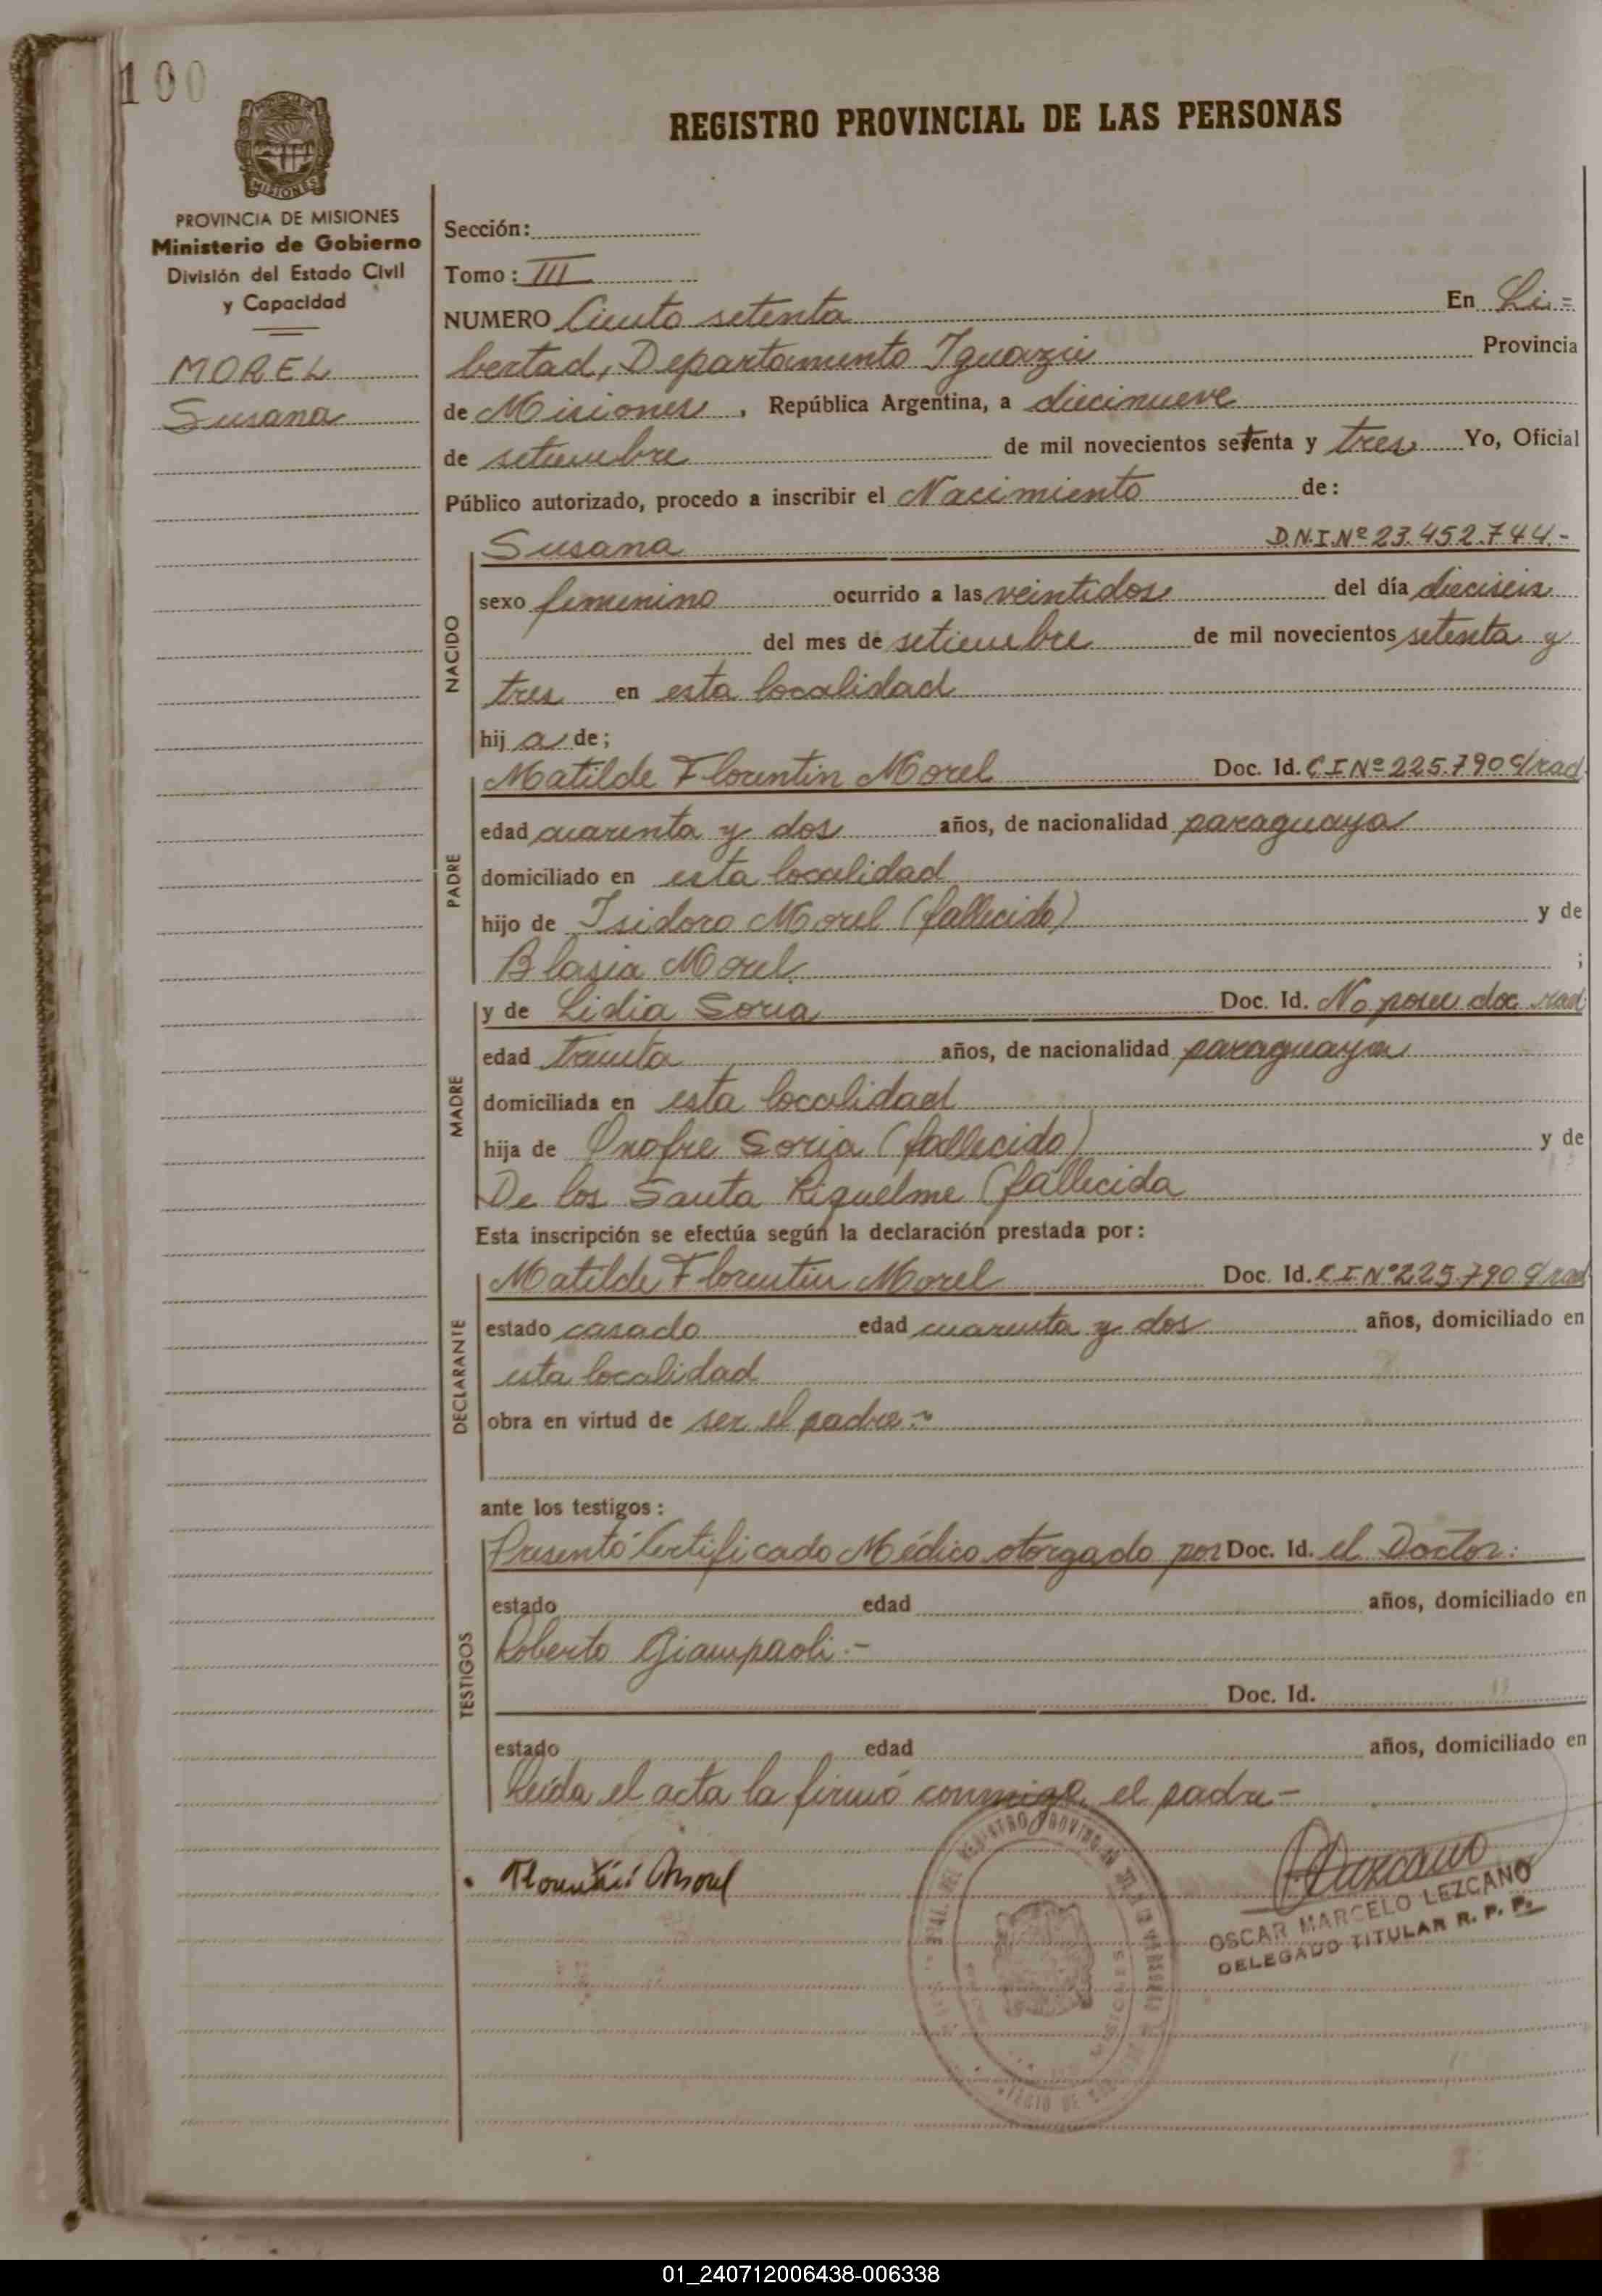 100
PROVINCIA DE MISIONES
MISIONES
PROVINCIA DE MISIONES
Ministerio de Gobierno
División del Estado Civil
y Capacidad
MOREL
Susana
REGISTRO PROVINCIAL DE LAS PERSONAS
Sección:
Tomo: III
NUMERO Ciento setenta En Li=
bertad, Departamento Iguazú Provincia
de Misiones, República Argentina, a diecinueve
de setiembre de mil novecientos setenta y tres Yo, Oficial
Público autorizado, procedo a inscribir el Nacimiento de:
NACIDO
Susana D.N.I.Nº 23.452.744.-
sexo femenino ocurrido a las veintidos del día dieciseis
del mes de setiembre de mil novecientos setenta y
tres en esta localidad
hij a de;
PADRE
Matilde Florentin Morel Doc. Id. C I Nº 225.790 c/rad
edad cuarenta y dos años, de nacionalidad paraguaya
domiciliado en esta localidad
hijo de Isidoro Morel (fallecido) y de
Blasia Morel ;
MADRE
y de Lidia Soria Doc. Id. No posee doc. rad
edad treinta años, de nacionalidad paraguaya
domiciliada en esta localidad
hija de Onofre Soria (fallecido) y de
De los Santa Riquelme (fallecida
Esta inscripción se efectúa según la declaración prestada por:
DECLARANTE
Matilde Florentin Morel Doc. Id. C I Nº 225.790 c/rad
estado casado edad cuarenta y dos años, domiciliado en
esta localidad
obra en virtud de ser el padre.-
ante los testigos:
TESTIGOS
Presentó Certificado Médico otorgado por Doc. Id. el Doctor:
estado edad años, domiciliado en
Roberto Giampaoli.-
Doc. Id.
estado edad años, domiciliado en
Leída el acta la firmó conmigo el padre-
Florentin Morel
Lezcano
OSCAR MARCELO LEZCANO
DELEGADO TITULAR R. P. P.
01_240712006438-006338